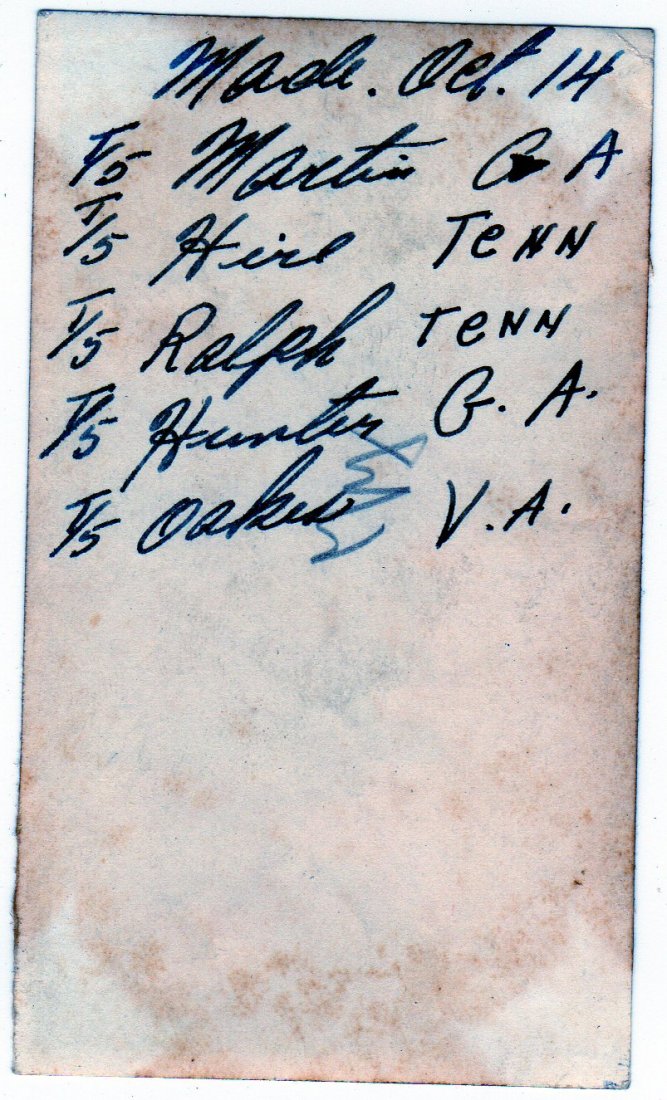 Made. Oct. 14
T/5 Martin G A
T/5 Hire Tenn
T/5 Ralph Tenn
T/5 Hunter G. A.
T/5 Oakes V. A.